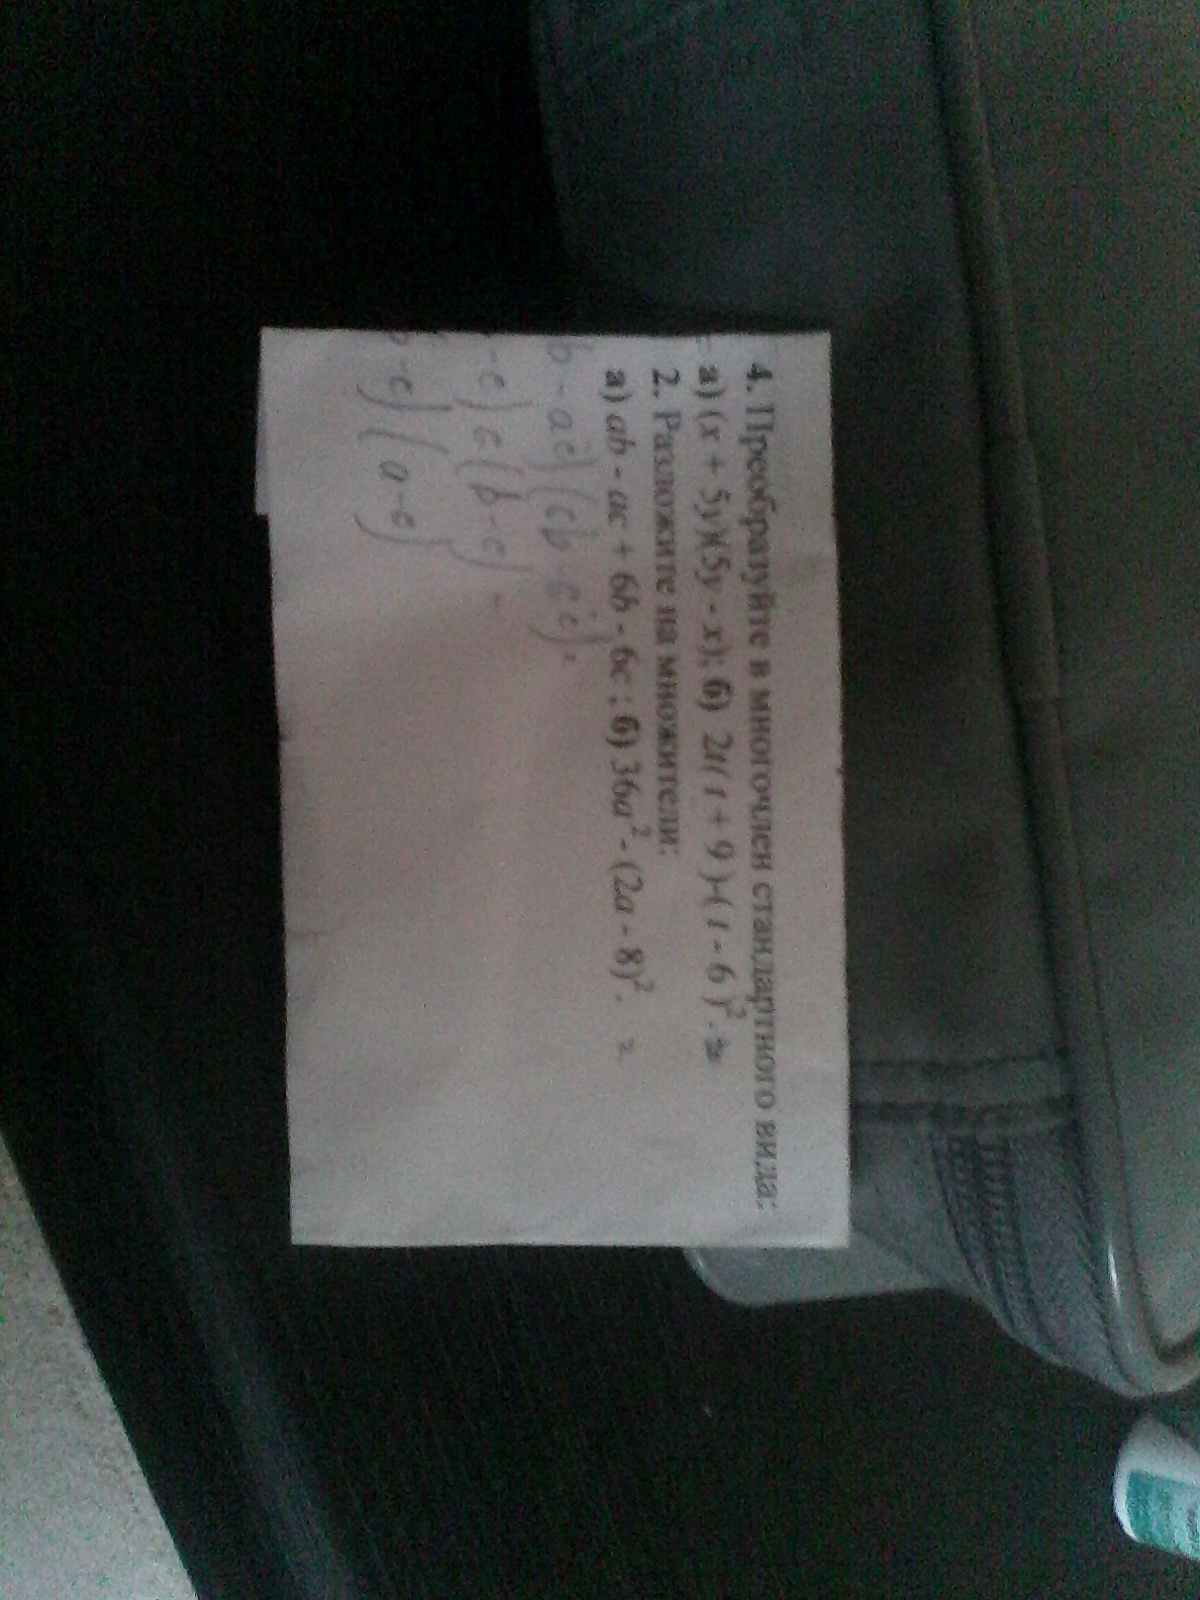 4. Преобразуйте в многочлен стандартного вида:
а) (x + 5y)(5y - x); б) 2t( t + 9 )-( t - 6 )². =
2. Разложите на множители:
а) ab - ac + 6b - 6c ; б) 36a² - (2a - 8)². =
b - ac) (cb - cc) =
- c) c (b - c) -
b - c) (a - c)